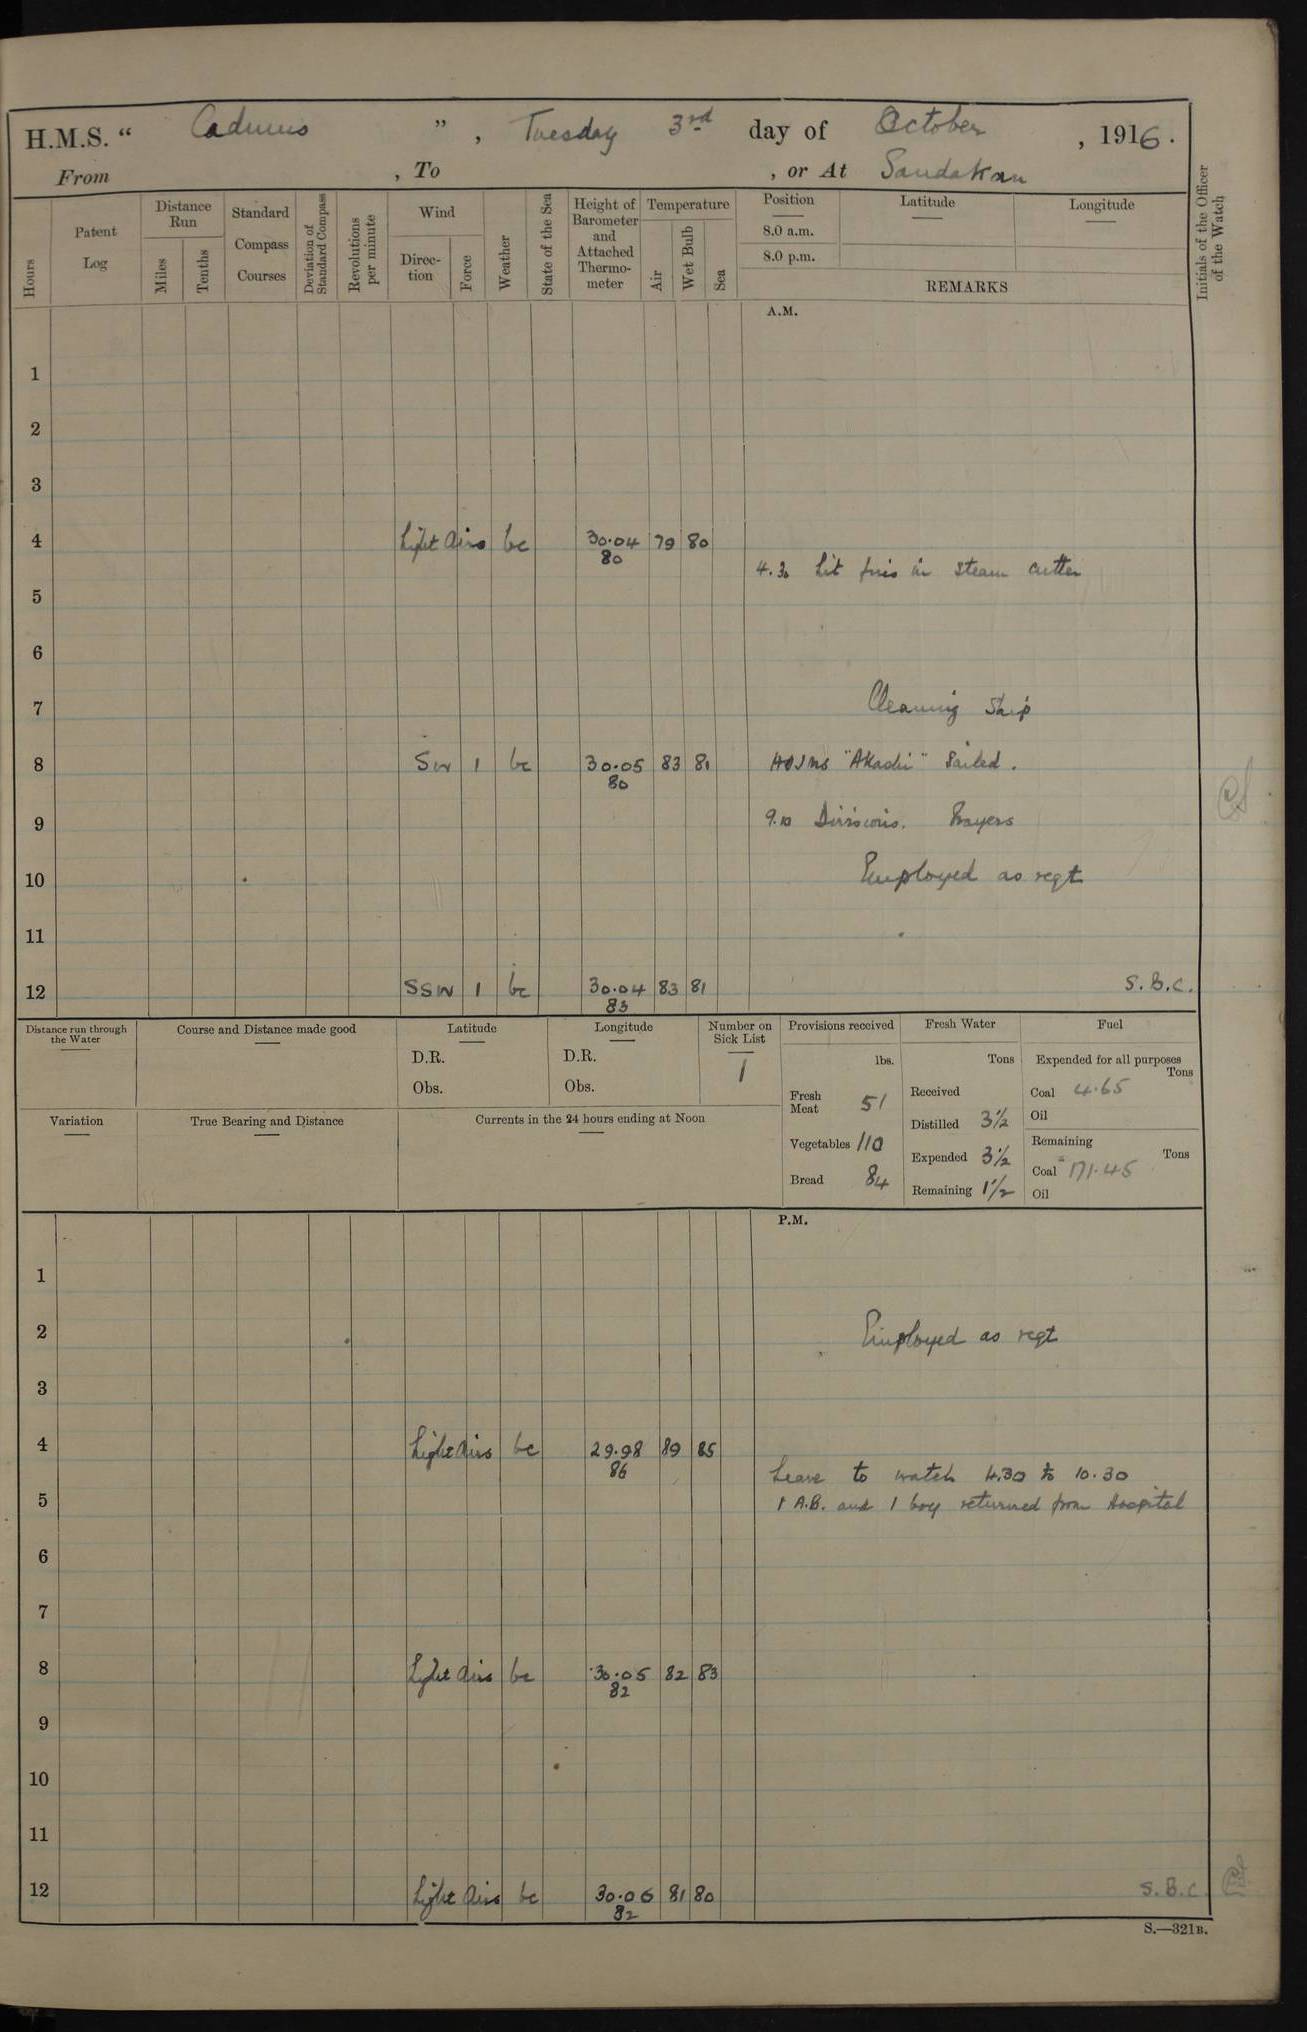 H.M.S. “ Cadmus ”, Tuesday 3rd day of October, 1916.
From , To , or At Sandakan
Hours
Patent Log
Distance Run
Miles
Tenths
Standard Compass Courses
Deviation of Standard Compass
Revolutions per minute
Wind
Direction
Force
Weather
State of the Sea
Height of Barometer and Attached Thermometer
Temperature
Air
Wet Bulb
Sea
Position
8.0 a.m.
8.0 p.m.
Latitude
Longitude
REMARKS
Initials of the Officer of the Watch
A.M.
1
2
3
4 Light Airs bc 30.04 79 80
80
4.30 Lit fires in steam cutter
5
6
7 Cleaning Ship
8 SW 1 bc 30.05 83 81 HIJMS "Akashi" Sailed.
80
9 9.10 Divisions. Prayers
10 Employed as reqt
11
12 SSW 1 bc 30.04 83 81 S.B.C.
83
Distance run through the Water
Course and Distance made good
Latitude
D.R.
Obs.
Longitude
D.R.
Obs.
Number on Sick List
1
Provisions received
lbs.
Fresh Meat 51
Vegetables 110
Bread 84
Fresh Water
Tons
Received
Distilled 3½
Expended 3½
Remaining 1½
Fuel
Expended for all purposes
Tons
Coal 4.65
Oil
Remaining
Tons
Coal 171.45
Oil
Variation
True Bearing and Distance
Currents in the 24 hours ending at Noon
P.M.
1
2 Employed as reqt
3
4 Light Airs bc 29.98 89 85
86
Leave to watch 4.30 to 10.30
5 1 A.B. and 1 boy returned from Hospital
6
7
8 Light Airs bc 30.05 82 83
82
9
10
11
12 Light Airs bc 30.06 81 80 S.B.C.
82
S.—321B.